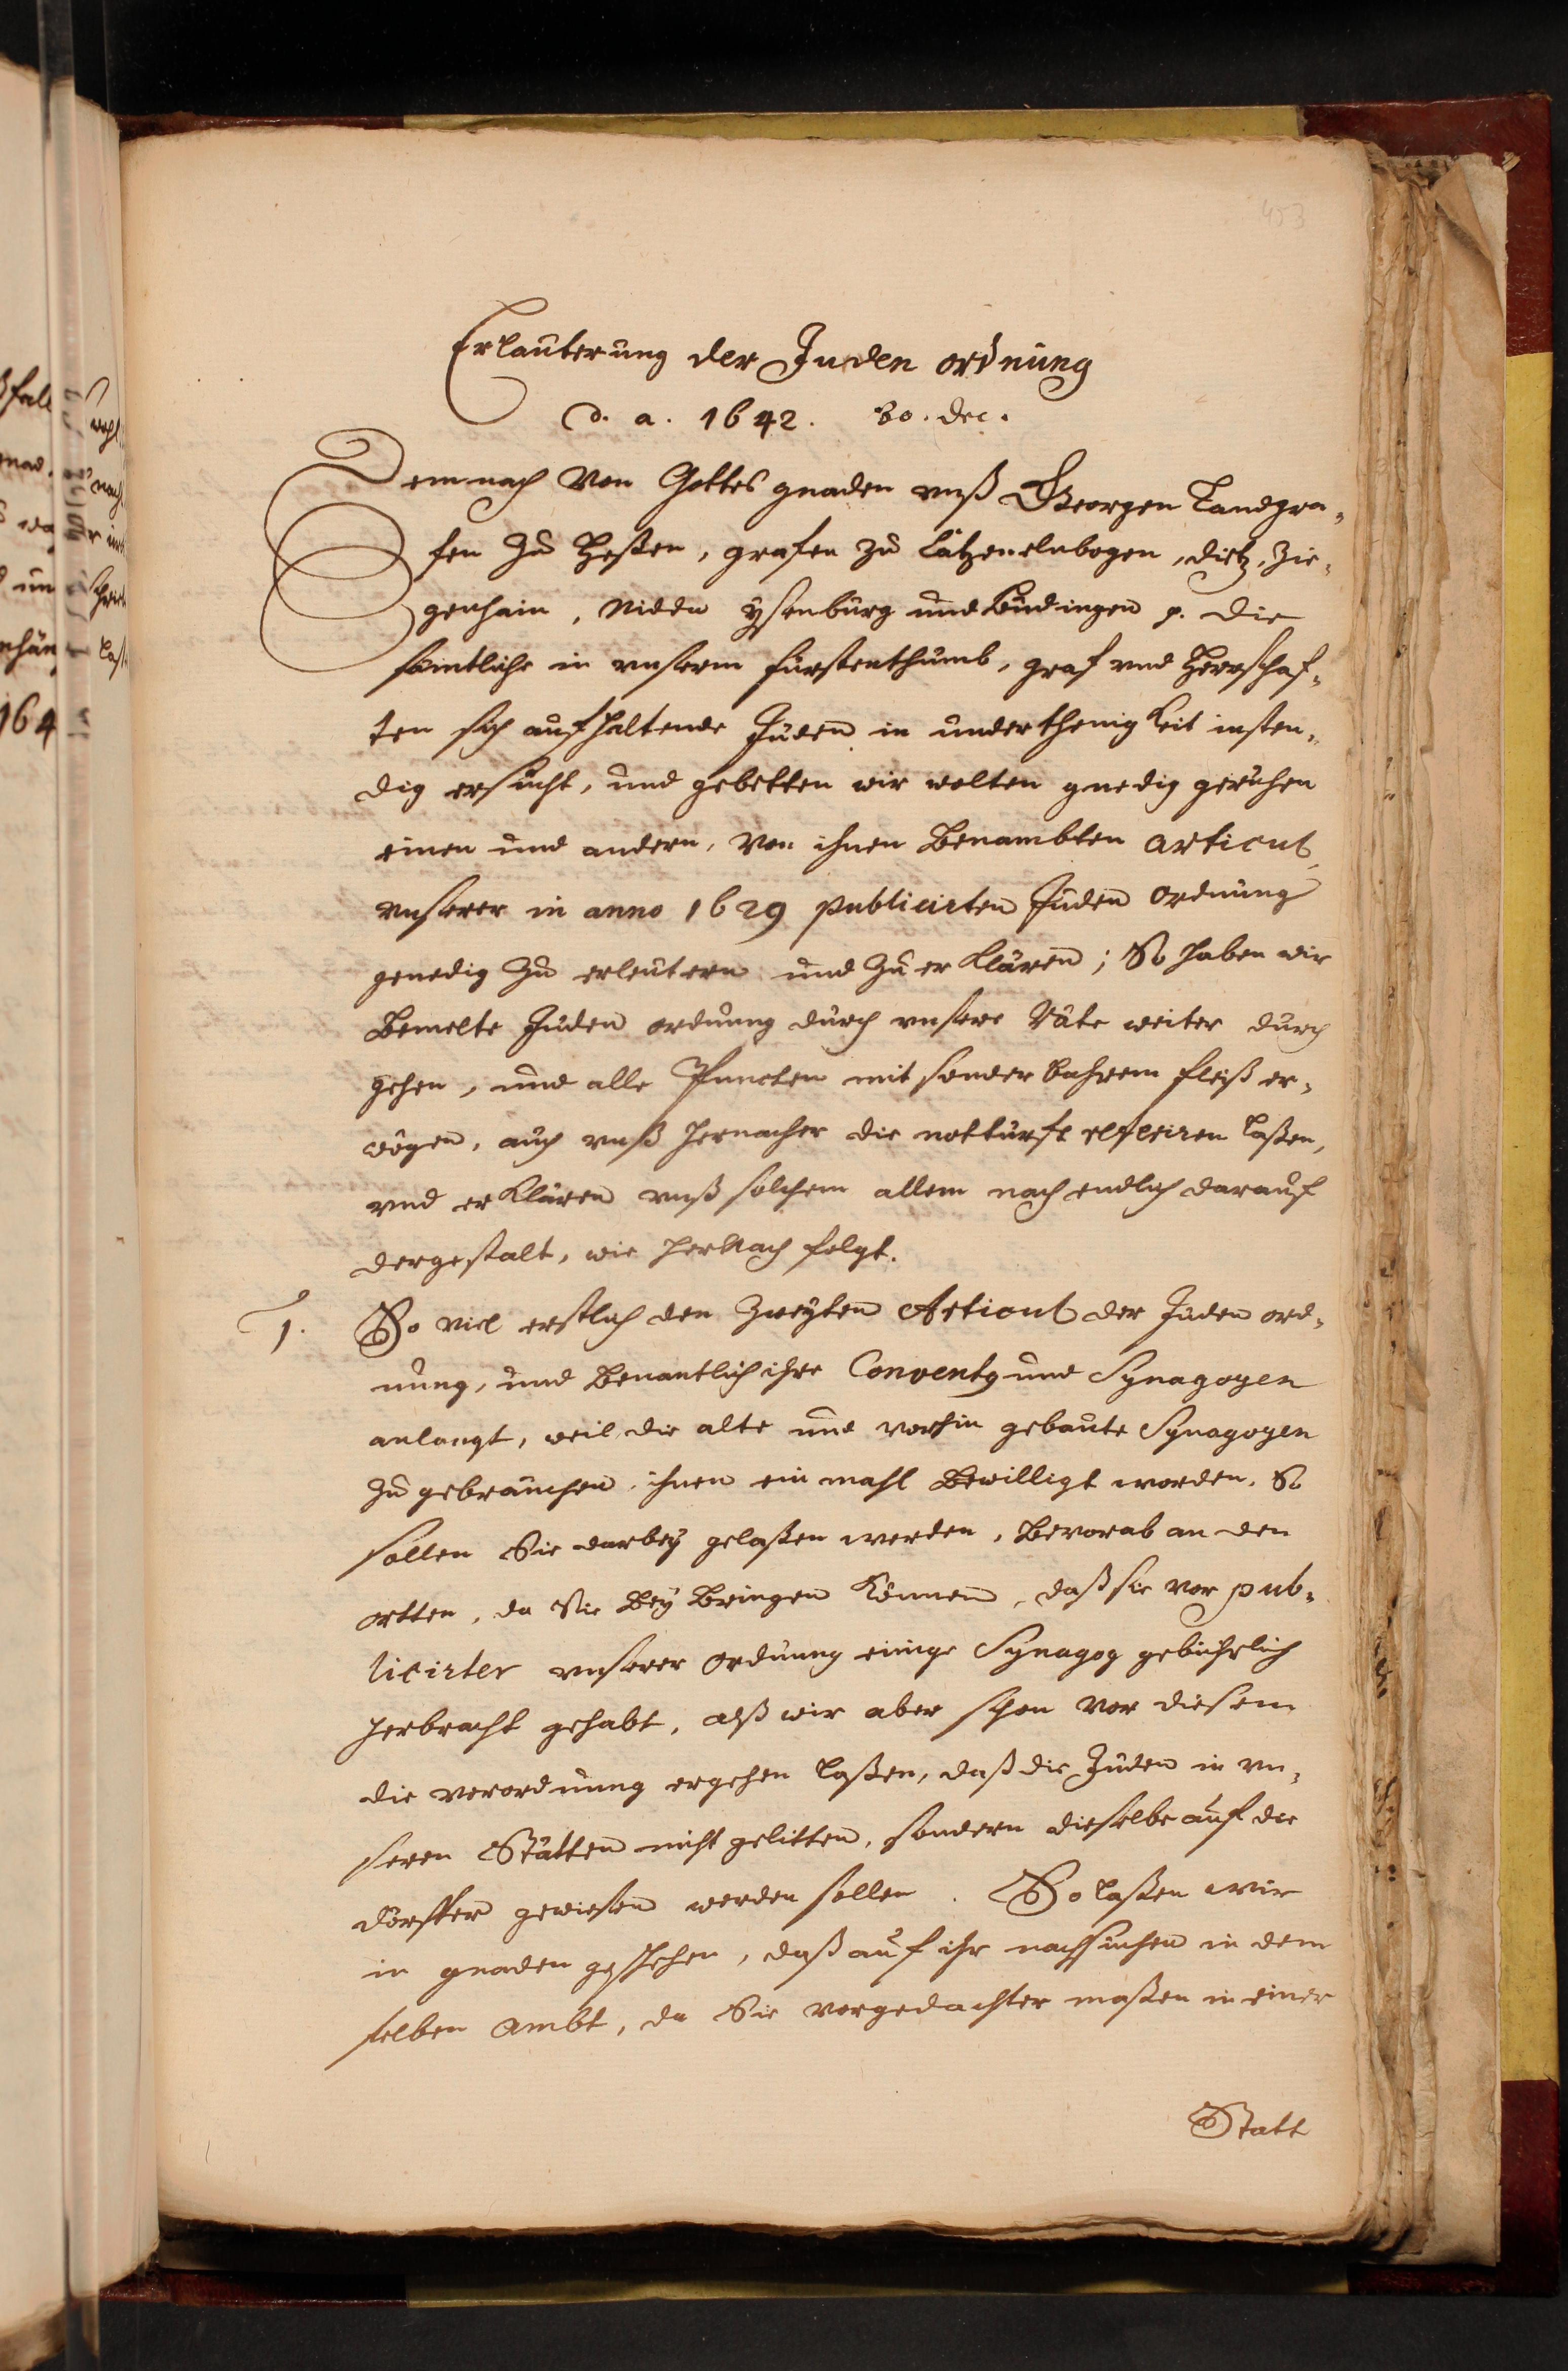 453
Erlauterung der Juden ordnung
d. a. 1642. 30. dec.
Demnach Von Gottes gnaden vnß Georgen Landgra„
fen Zu Heßen, grafen zu Catzenelnbogen, dietz, Zie„
genhain, Nidda ysenburg und Budingen p. die
semtliche in vnserm fürstenthumb, graf vnd Herrschaf„
ten sich aufhaltende Juden in underthenigkeit insten„
dig ersucht, und gebetten wir wolten gnedig geruhen
einen und andern, von ihnen Benambten Articul
vnserer in anno 1629 publicirten Juden ordnung
genedig Zu erleutern und Zu erklären; So haben wir
Bemelte Juden ordnung durch vnsere Räte weiter durch
gehen, und alle Puncten mit sonderbahrem fleiß er„
wögen, auch vnß hernacher die notturft referiren laßen,
vnd erklären vnß solchem allem nach endlich darauf
dergestalt, wie hernach folgt.
1. So viel erstlich den Zweyten Articul der Juden ord„
nung, und Benantlich ihre Conventus und Synagogen
anlangt, weil die alte und vorhin gebaute Synagogen
Zu gebrauchen ihnen ein mahl Bewilligt worden, So
sollen Sie darbey gelaßen werden, Bevorab an den
ortten, da Sie Bey Bringen können, daß sie vor pub„
licirter vnserer ordnung einige Synagog gebührlich
herbracht gehabt, alß wir aber schon vor diesem
die verordnung ergehen laßen, daß die Juden in vn„
seren Stätten nicht gelitten, sondern dieselbe auf die
dörffer gewiesen werden sollen. So laßen wir
in gnaden geschehen, daß auf ihr nachsuchen in dem
selben Ambt, da Sie vorgedachter maßen in einer
Statt